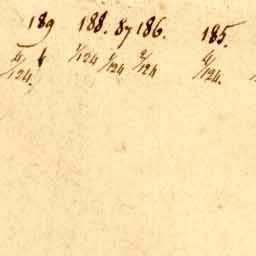 189 188. 87 186. 185.
4/124. 1/124 1/124 2/124 4/124.